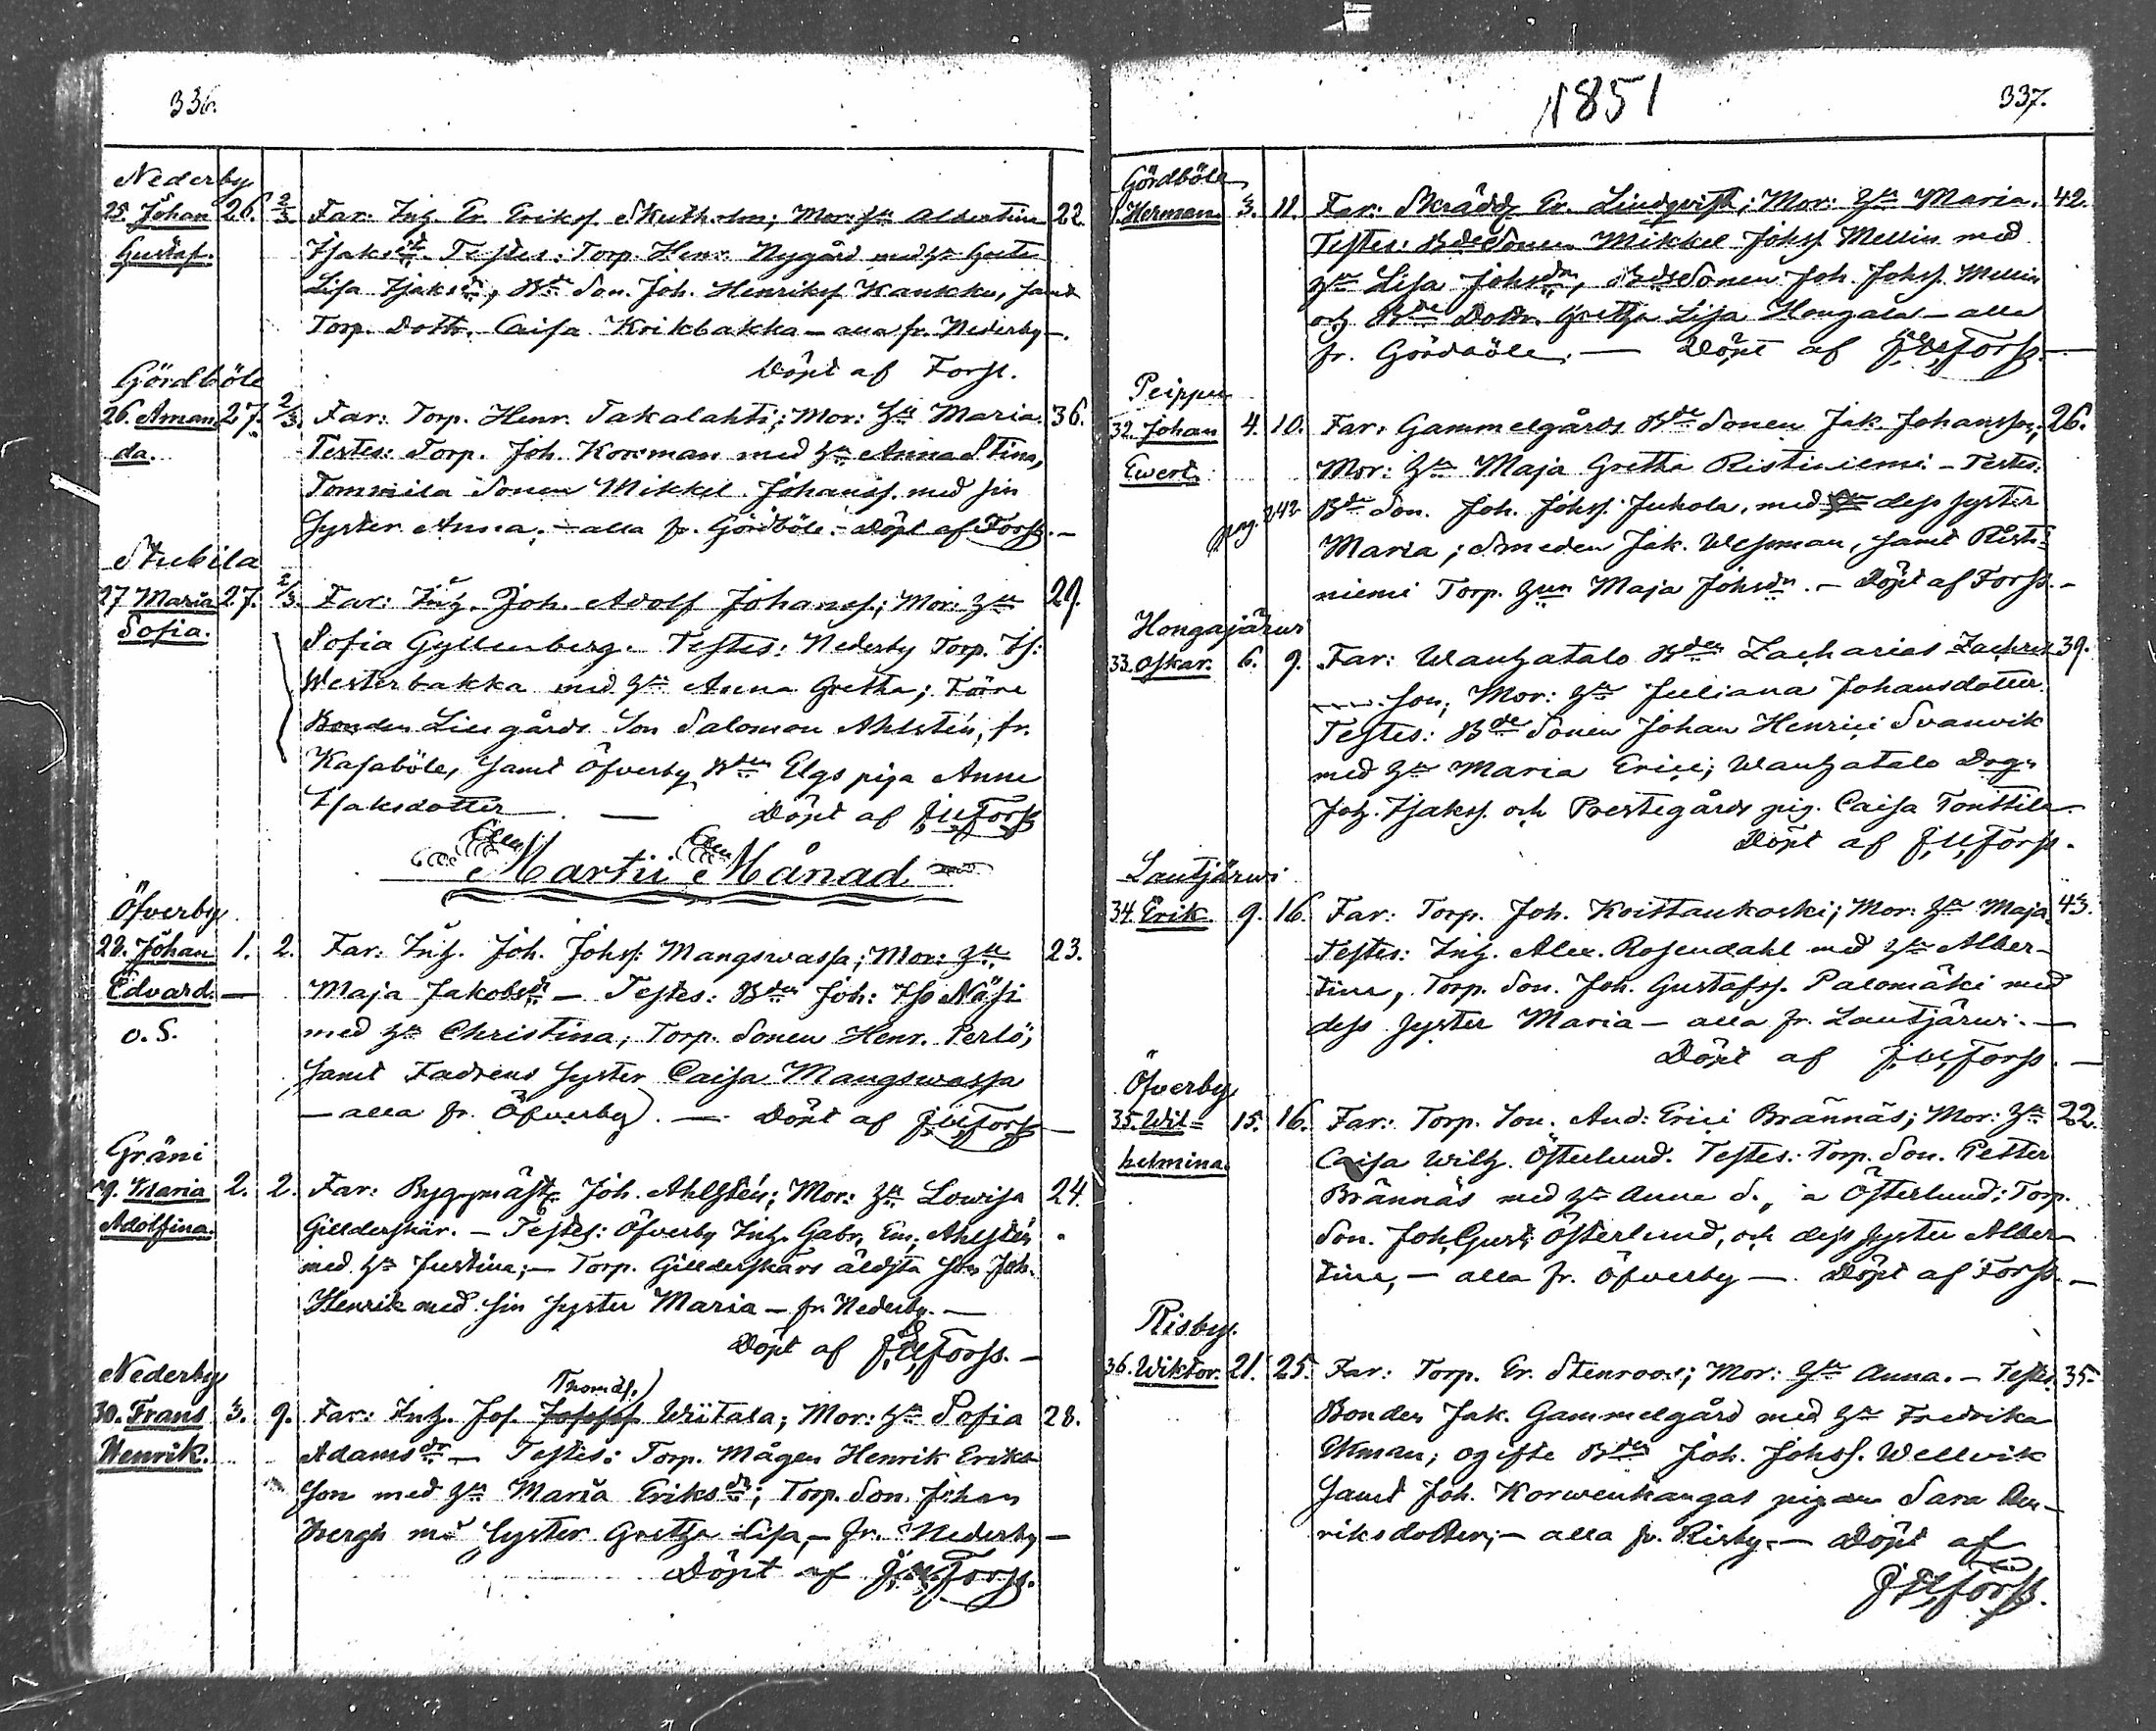 336.
Nederby
25. Johan 26. 2/3 Far: Inh. Er. Erikss. Skutholm; Mor: hu Albertina 22.
Gustaf. Isaksdr. Testes: Torp. Henr. Nygård med hu Greta
Lisa Isaksdr, Bde Son. Joh. Henrikss. Kaukku, samt
Torp. Dottr. Caisa Krikbakka – alla fr. Nederby –.
Döpt af Forss.
Gördböle
26. Aman 27. 2/3. Far: Torp. Henr. Takalahti; Mor: Hu Maria. 36.
da. Testes: Torp. Joh. Korsman med hu Anna Stina,
Tommila Sonen Mikkel Johanss. med sin
Syster Anna; – alla fr. Gördböle. – Döpt af Forss. –
Stubila
27 Maria 27. 2/3. Far: Inh. Joh. Adolf Johanss.; Mor: Hu 29.
Sofia. Sofia Gyllenberg. Testes: Nederby Torp. Is:
Westerbakka med hu Anna Gretha; Före
Bonden Liugårds Son Salomon Ahlstén, fr.
Kasaböle, samt Öfverby Bden Elgs piga Anna
Isaksdotter —. — Döpt af J.U.Forss
Martii Månad
Öfverby
28. Johan 1. 2. Far: Inh. Joh. Johss: Mangswassa; Mor: Hu 23.
Edvard. — Maja Jakobsdr – Testes: Bden Joh: Iss Näsi
o. S. med hu Christina, Torp. Sonen Henr. Perlö;
samt Fadrens syster Caisa Mangswassa
– alla fr. Öfverby). – Döpt af J.U.Forss –
Gräni
29. Maria 2. 2. Far: Byggmäst. Joh. Ahlstén; Mor: Hu Lowisa 24.
Adolfina. Gillderskär. – Testes: Öfverby Inh. Gabr. Em. Ahlstén
med hu Justina; – Torp. Gillderskärs äldsta Son Joh.
Henrik med sin syster Maria – fr. Nederby. –
Döpt af J.U.Forss. –
Nederby
Thomæs.)
30. Frans 3. 9. Far: Inh. Jos. Josefss. Wiitala; Mor: Hu Sofia 28.
Henrik. Adamsdr – Testes: Torp. Mågen Henrik Eriks
son med hu Maria Eriksdr; Torp. Son Johan
Bergh md Syster Gretha Lisa, – fr. Nederby –
Döpt af J.U.Forss.
1851 337.
Gördböle
Herman 3. 11. Far: Skrädd. Er. Lindqvist; Mor: Hu Maria. 42.
Testes: Bde Sonen Mikkel Johss. Mellin med
hu Lisa Johsdr, Bde Sonen Joh. Johss. Mellin
och Bde Dottr. Gretha Lisa Hongala – alla
fr. Gördböle. — Döpt af J.U.Forss —
Peippu
32. Johan 4. 10. Far: Gammelgårds Bde Sonen Jak. Johansson; 26.
Ewert. Mor: Hu Maja Gretha Ristiniemi – Testes:
pag. 242 Bde Son. Joh. Johss. Jukola, med dess syster
Maria; Smeden Jak. Wessman, samt Risti-
niemi Torp. Hun Maja Johsdr. – Döpt af Forss. –
Hongajärwi
33. Oskar. 6. 9. Far: Wanhatalo Bden Zacharias Zachris 39.
son; Mor: Hu Juliana Johansdotter.
Testes: Bde Sonen Johan Henrici Svanvik
med hu Maria Erici; Wanhatalo Drg.
Joh. Isakss. och Prestegårds pig. Caisa Tonttila.
Döpt af J.U.Forss.
Lautjärwi
34. Erik. 9. 16. Far: Torp. Joh. Koistaukoski; Mor: Hu Maja. 43.
Testes: Inh. Alex. Rosendahl med hu Alber-
tina, Torp. Son. Joh. Gustafss. Palomäki med
dess syster Maria – alla fr. Lautjärwi. —
Döpt af J.U.Forss. –
Öfverby
35. Wil- 15. 16. Far: Torp. Son. And: Erici Brännäs; Mor: Hu 22.
helmina. Caisa Wilh. Österlund. Testes: Torp. Son. Petter
Brännäs med hu Anna S., a Österlund; Torp.
Son. Joh. Gust. Österlund, och dess syster Alber-
tina, – alla fr. Öfverby –. Döpt af Forss. –
Risby.
36. Wiktor. 21. 25. Far: Torp. Er. Stenroos; Mor: Hu Anna. – Testes. 35.
Bonden Jak. Gammelgård med hu Fredrika
Ekman; ogifte Bden Joh. Johss. Wellvik
samt Joh. Korwenkangas pigan Sara Hen-
riksdotter; – alla fr. Risby. – Döpt af
J.U.Forss.